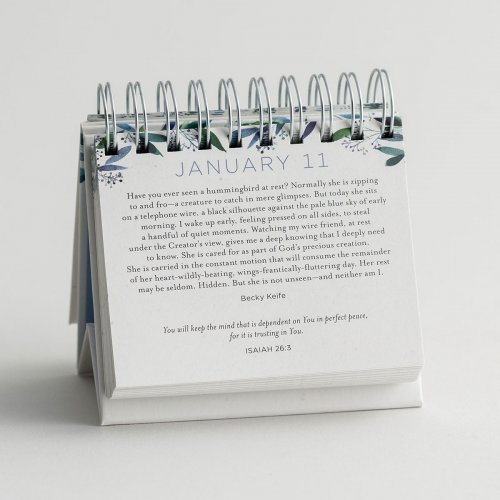 JANUARY 11
Have you ever seen a hummingbird at rest? Normally she is zipping
to and fro—a creature to catch in mere glimpses. But today she sits
on a telephone wire, a black silhouette against the pale blue sky of early
morning. I wake up early, feeling pressed on all sides, to steal
a handful of quiet moments. Watching my wire friend, at rest
under the Creator's view, gives me a deep knowing that I deeply need
to know. She is cared for as part of God's precious creation.
She is carried in the constant motion that will consume the remainder
of her heart-wildly-beating, wings-frantically-fluttering day. Her rest
may be seldom. Hidden. But she is not unseen—and neither am I.
Becky Keife
You will keep the mind that is dependent on You in perfect peace,
for it is trusting in You.
ISAIAH 26:3